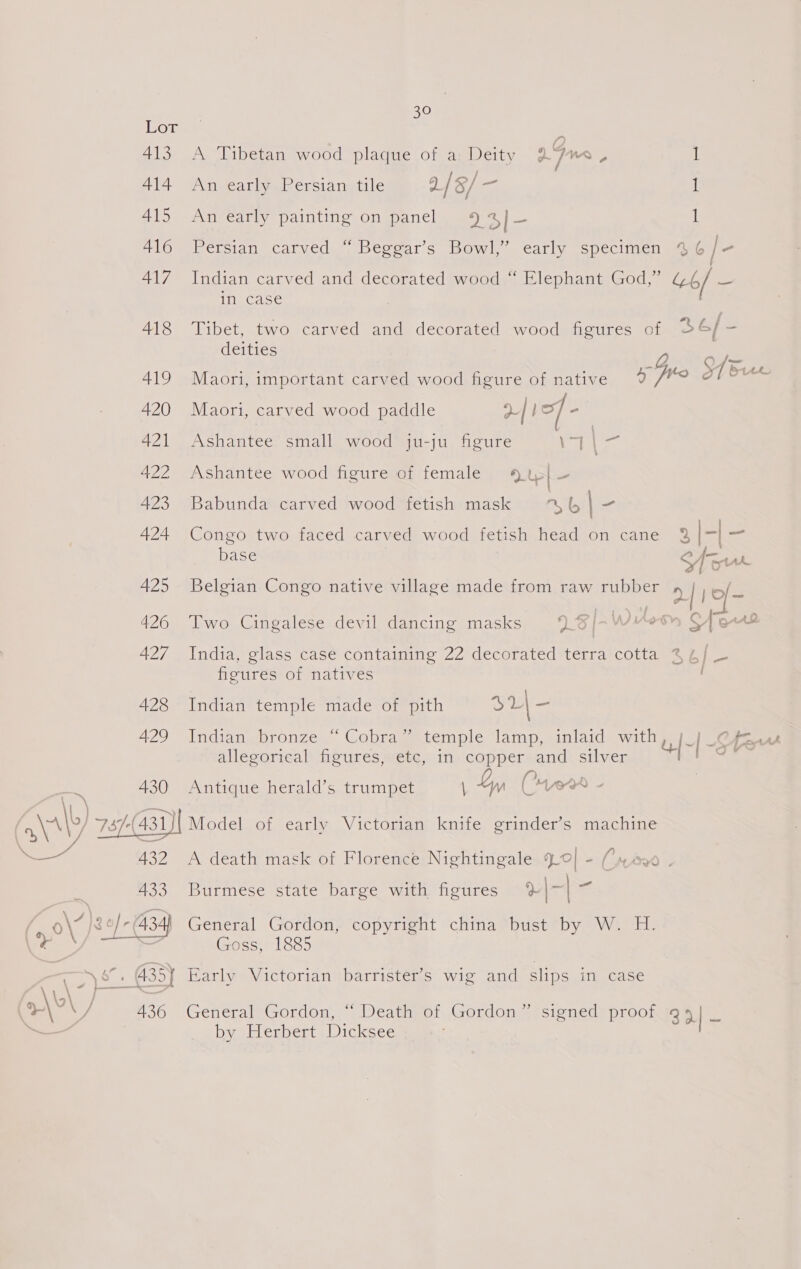 30
Lot
413 A Tibetan wood plaque of a Deity 2 Gns. 1
414 An early Persian tile 2/8/- 1
415 An early painting on panel 23/- 1
416 Persian carved “Beggar's Bowl,” early specimen 36/-
417 Indian carved and decorated wood “Elephant God,” 46/-
in case
418 Tibet, two carved and decorated wood figures of 36/-
deities
419 Maori, important carved wood figure of native 5 Gns
420 Maori, carved wood paddle 2/10/-
421 Ashantee small wood ju-ju figure 17/-
422 Ashantee wood figure of female
423 Babunda carved wood fetish mask 36/-
424 Congo two faced carved wood fetish head on cane 3/-/-
base
425 Belgian Congo native village made from raw rubber 2/10/-
426 Two Cingalese devil dancing masks 28/-
427 India, glass case containing 22 decorated terra cotta 36/-
figures of natives
428 Indian temple made of pith 32/-
429 Indian bronze “Cobra” temple lamp, inlaid with
allegorical figures, etc, in copper and silver
430 Antique herald's trumpet 1 Gn
431 Model of early Victorian knife grinder's machine
432 A death mask of Florence Nightingale 20/-
433 Burmese state barge with figures 2/-/-
30/- 434 General Gordon, copyright china bust by W. H.
Goss, 1885
435 Early Victorian barrister's wig and slips in case
436 General Gordon, “Death of Gordon” signed proof 32/-
by Herbert Dicksee